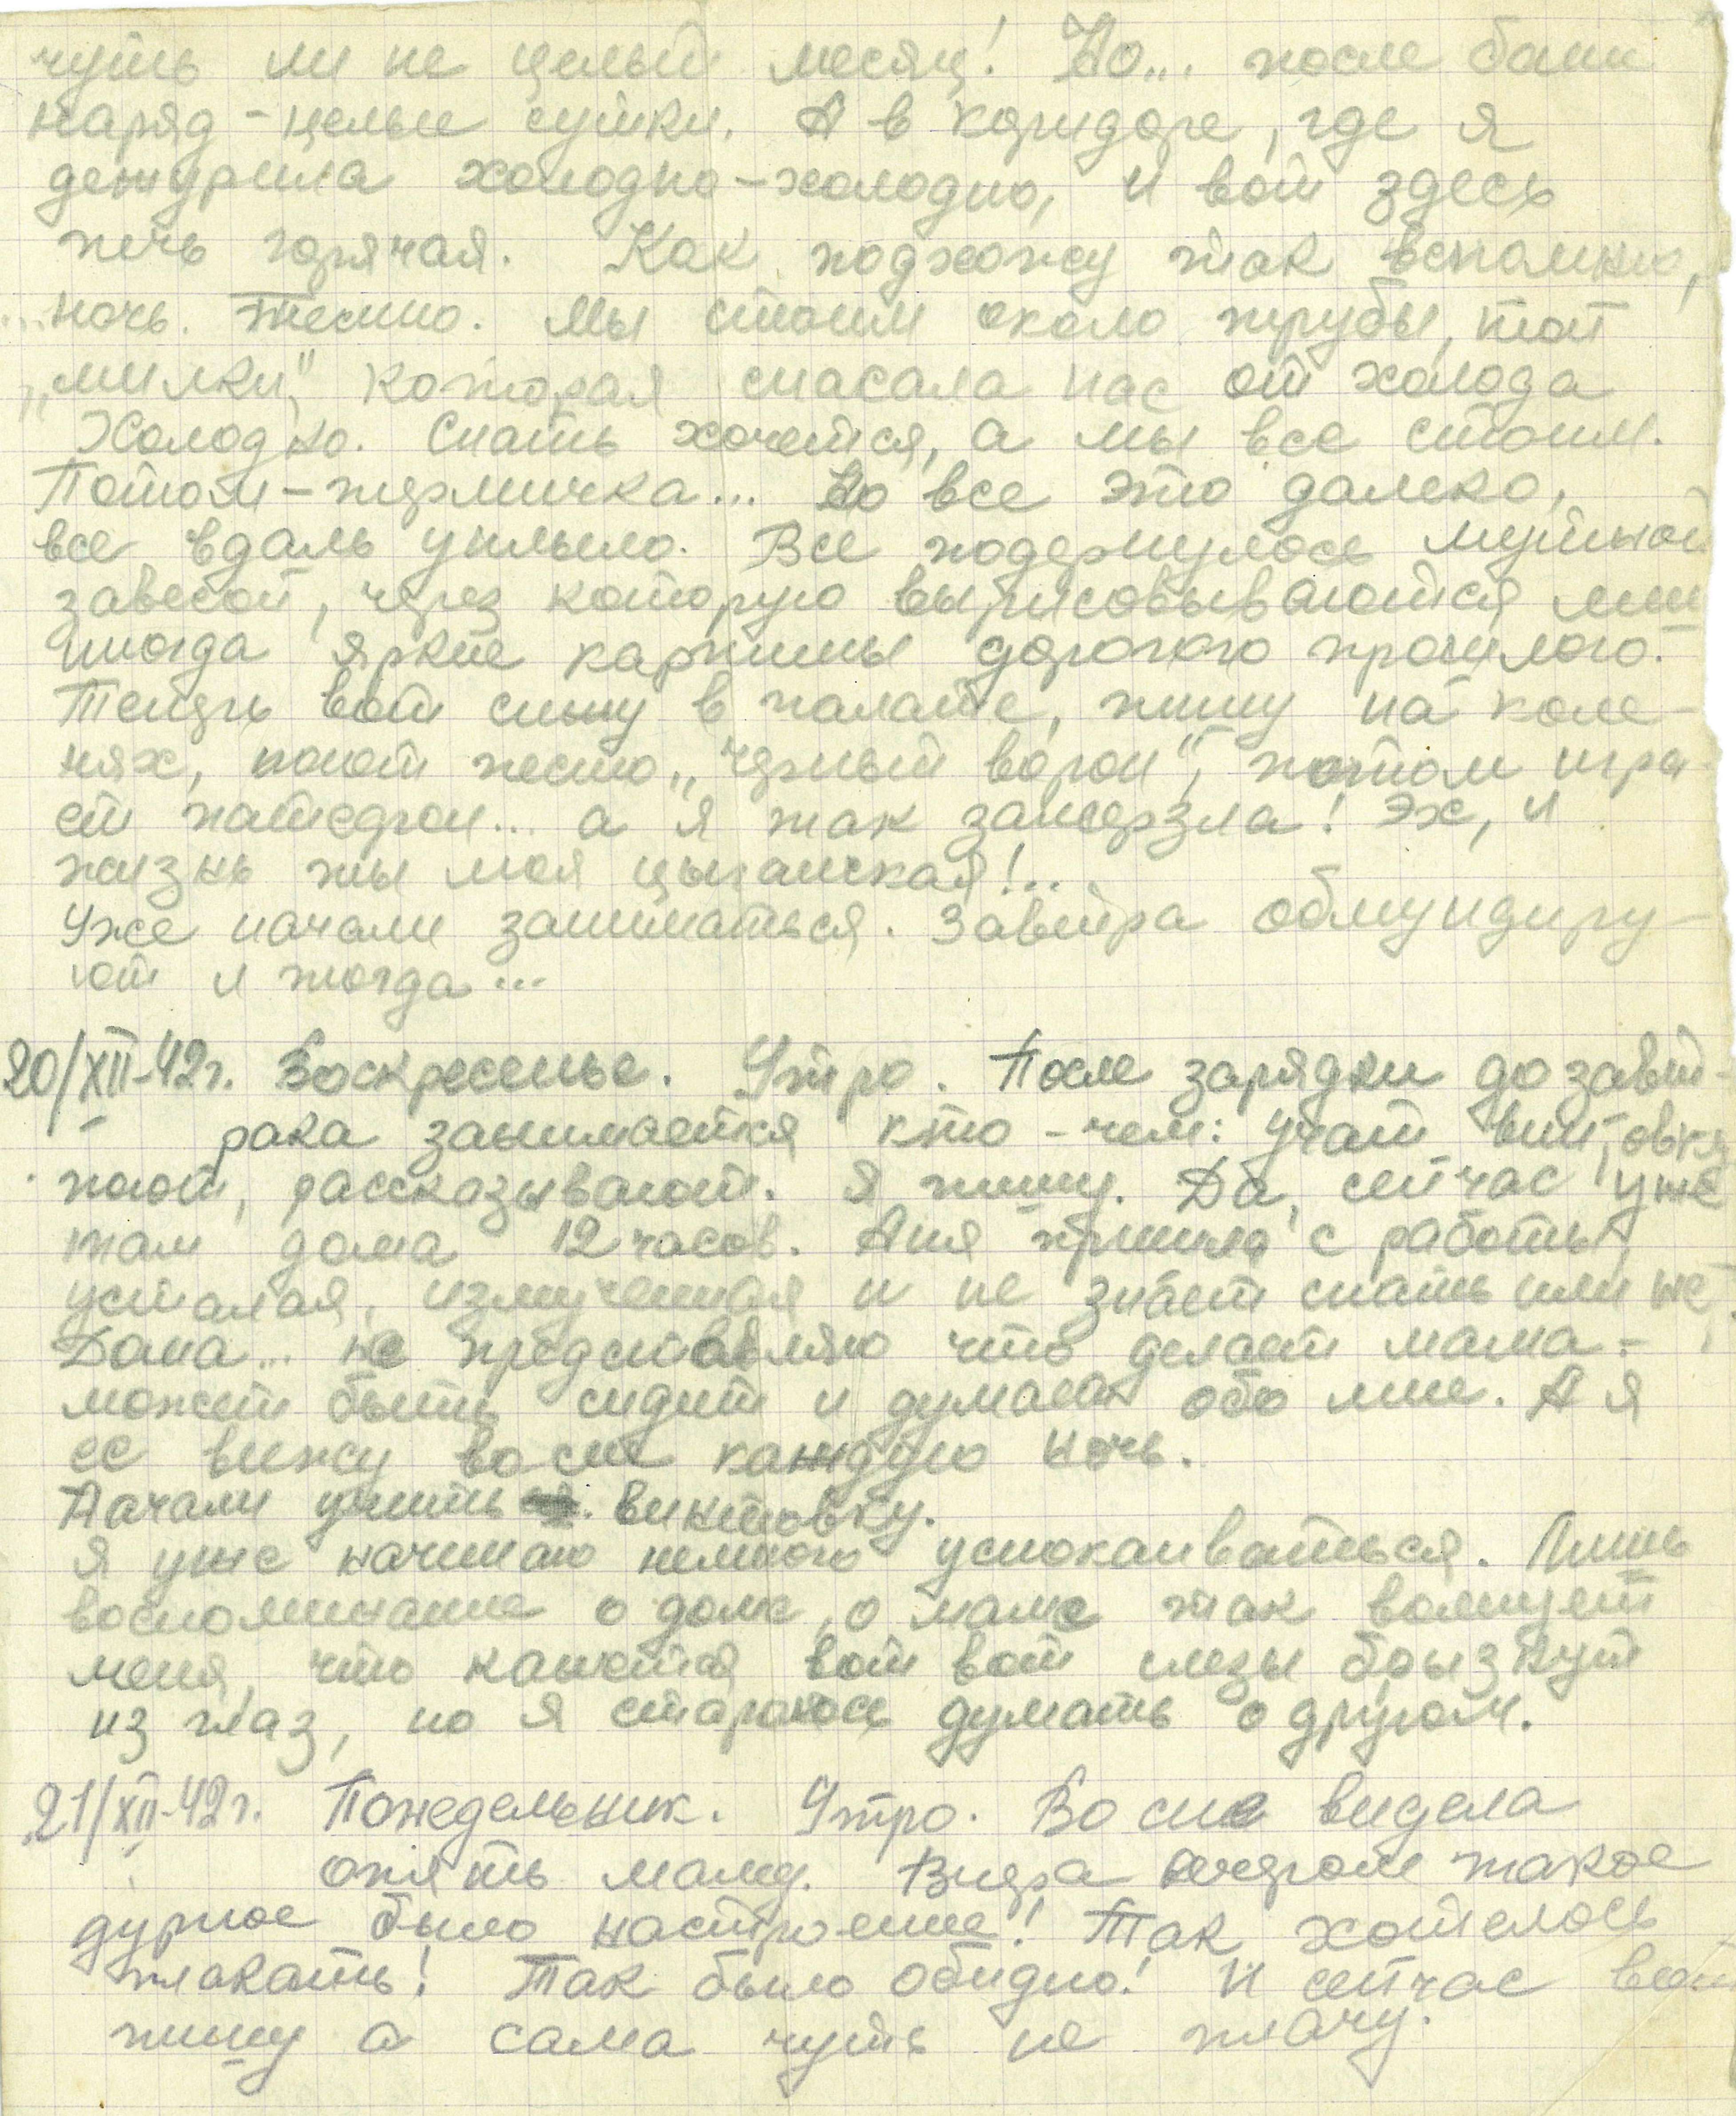 чуть ли не целый месяц! Но... после бани
наряд - целые сутки. А в коридоре, где я
дежурила холодно-холодно, и вот здесь
печь горячая. Как подхожу так вспомню,
ночь. Темно. Мы стоим около трубы, той
„милки“, которая спасала нас от холода
Холодно. Спать хочется, а мы все стоим.
Потом - перличка... Но все это далеко,
все вдаль уплыло. Все подернулось мутной
завесой, через которую вырисовываются мне
иногда яркие картины дорогого прошлого.
Теперь вот сижу в палате, пишу на коле-
нях, поют песню „Черный ворон“, потом игра-
ет патефон... а я так замерзла! Эх, и
жизнь ты моя цыганская!..
Уже начали заниматься. Завтра обмундиру-
ют и тогда...
20/XII-42г. Воскресенье. Утро. После зарядки до завт-
рака занимается кто - чем: учат винтовку,
поют, рассказывают. Я пишу. Да, сейчас уже
там дома 12 часов. Аня пришла с работы,
усталая, измученная и не знает спать или нет
Дома... не представляю что делает мама -
может быть сидит и думает обо мне. А я
ее вижу во сне каждую ночь.
Начали учить винтовку.
Я уже начинаю немного успокаиваться. Лишь
воспоминание о доме, о маме так волнует
меня, что кажется вот вот слезы брызнут
из глаз, но я стараюсь думать о другом.
21/XII-42г. Понедельник. Утро. Во сне видела
опять маму. Вчера вечером такое
дурное было настроение! Так хотелось
плакать! Так было обидно! И сейчас вот
пишу а сама чуть не плачу.